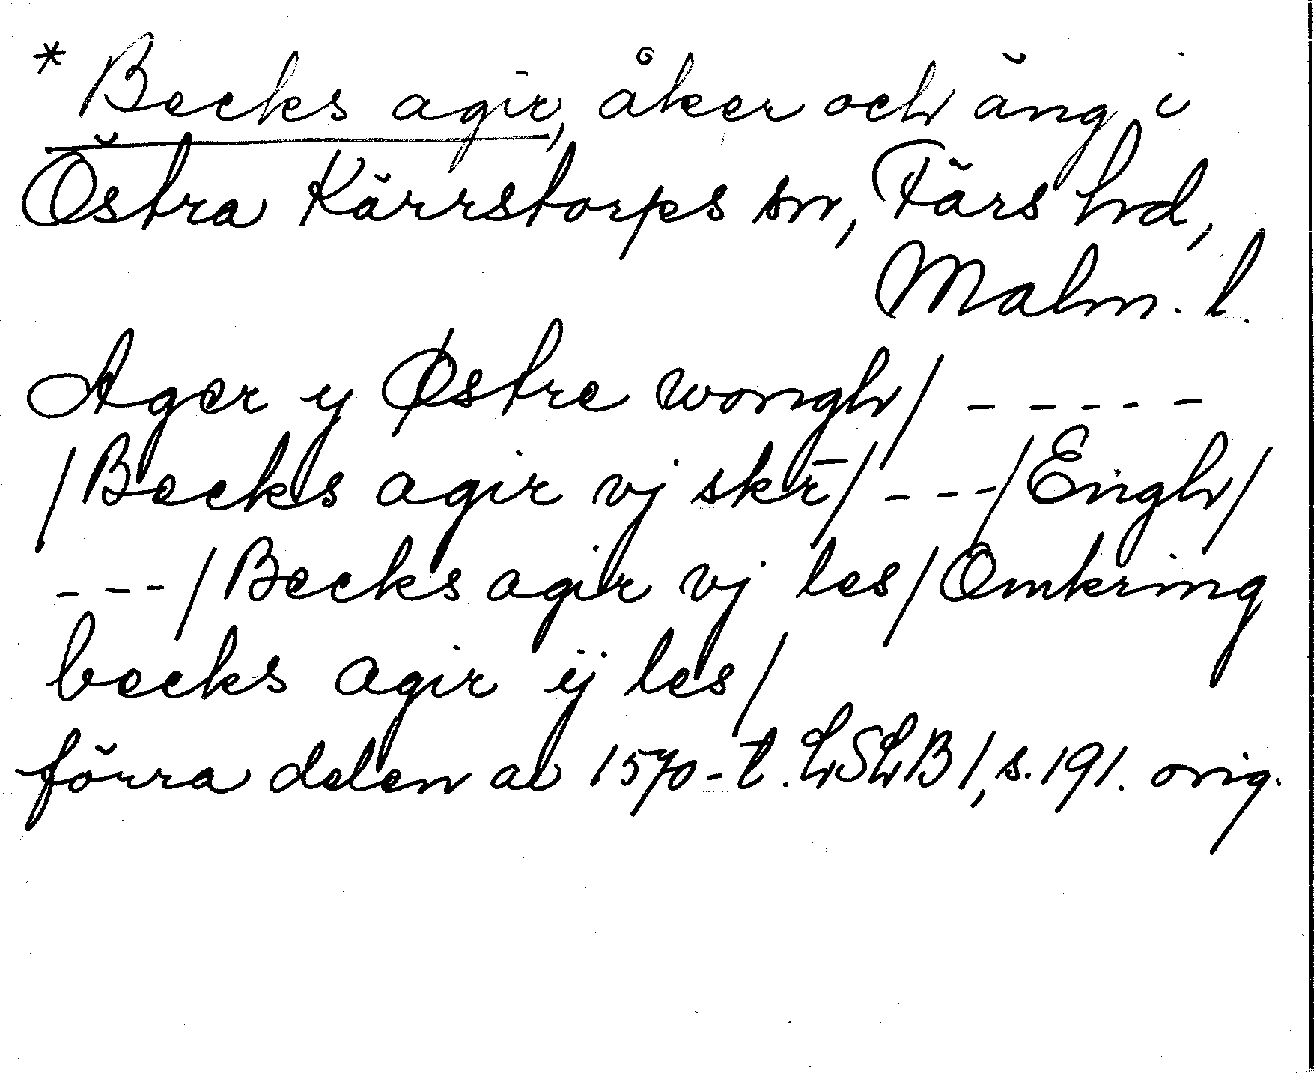 * Becks agir, åker och äng i
Östra Kärrstorps sn, Färs hd,
Malm. l.
Ager y Østre wongh/ - - - - -
/Becks agir vj skr̄/ - - - /Engh/
- - - /Becks agir vj les/Omkring
becks agir ij les/
förra delen av 1570-t. LSLB 1, s. 191. orig.